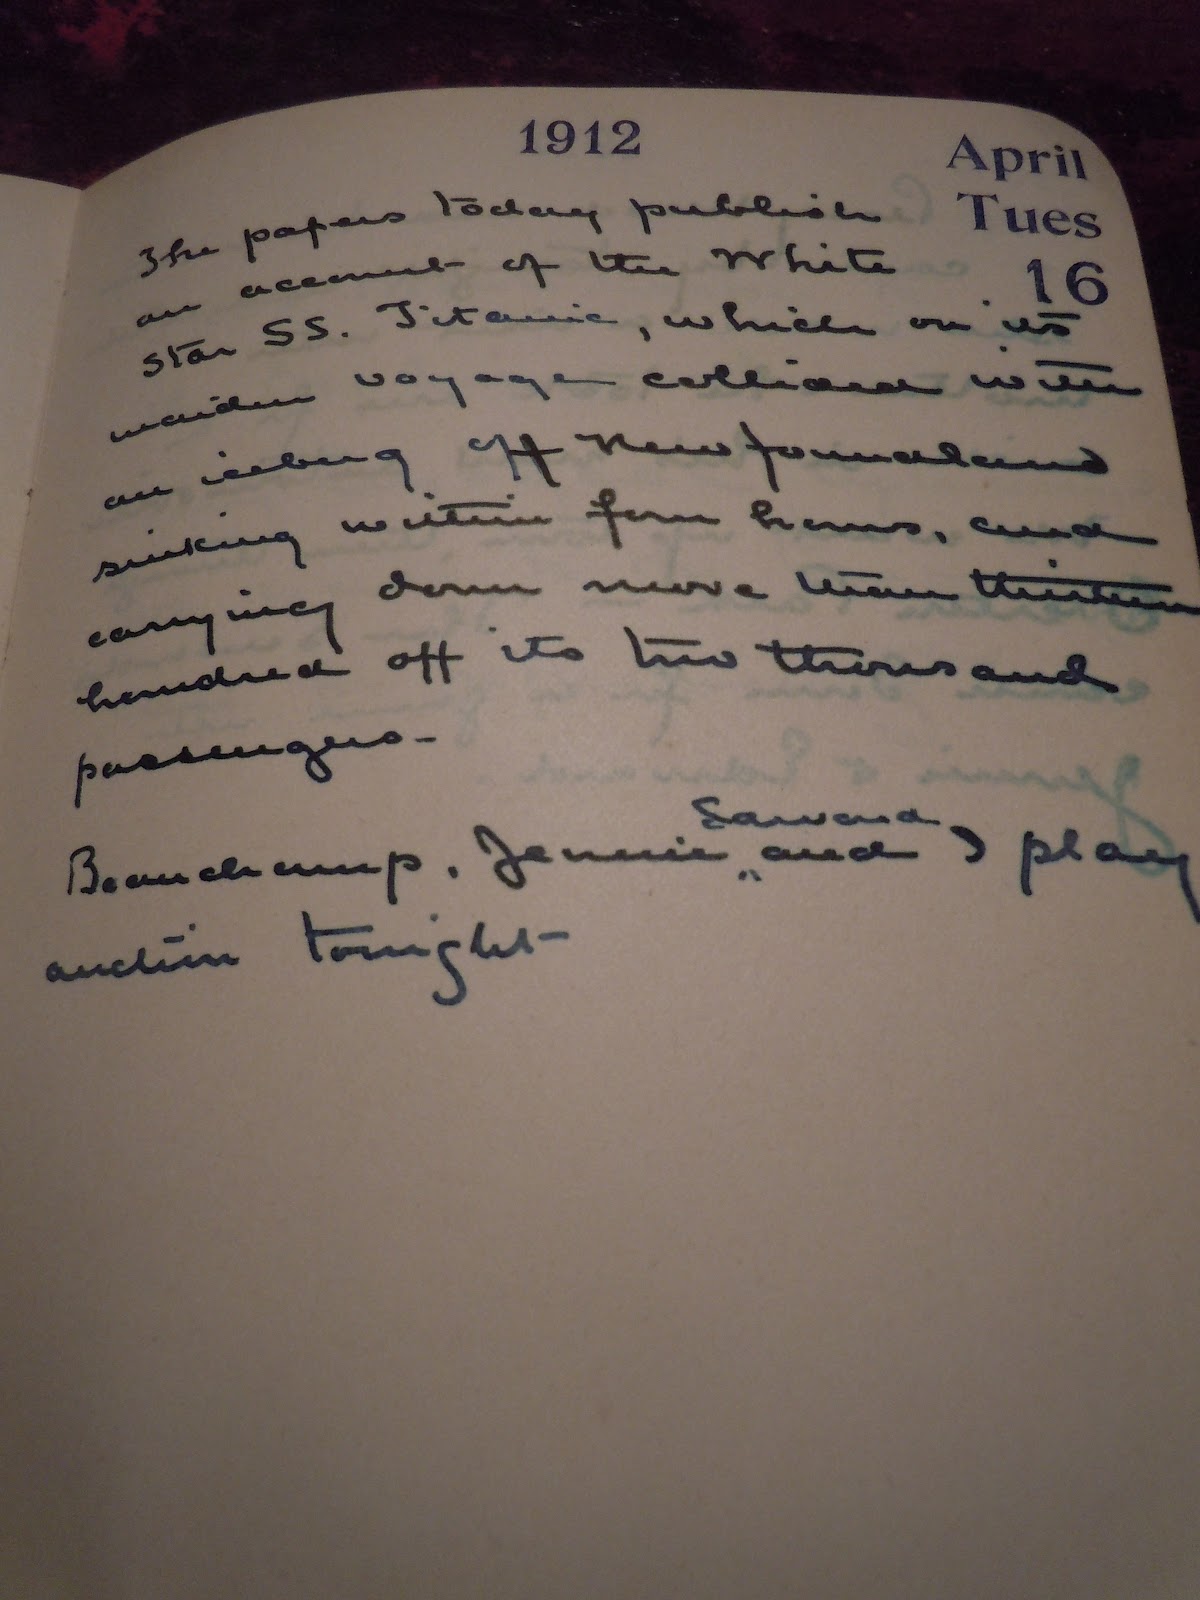 1912
April
Tues
16
The papers today publish
an account of the White
Star SS. Titanic, which on its
maiden voyage collided with
an iceberg off Newfoundland
sinking within four hours, and
carrying down more than thirteen
hundred off its two thousand
passengers-
Edward
Beauchamp, Jennie " and I play
auction tonight-